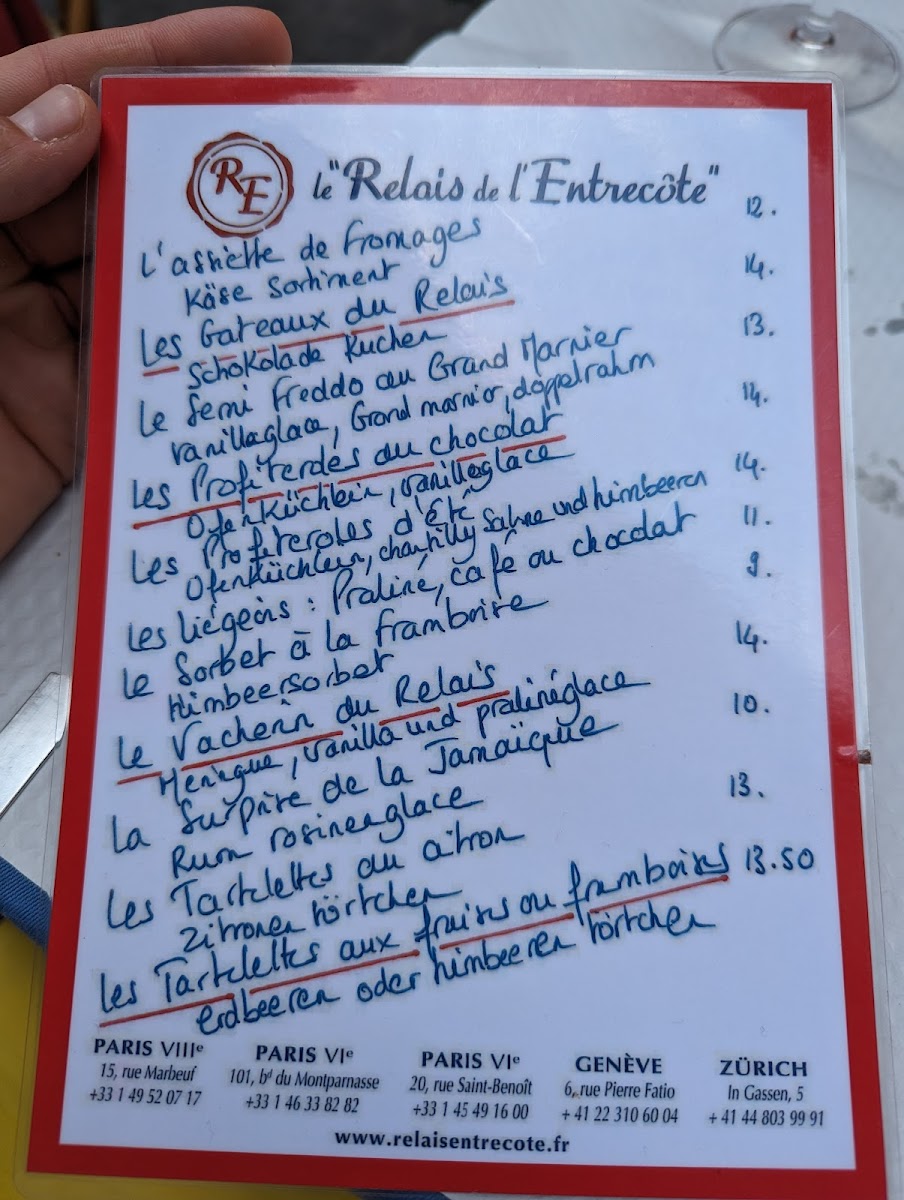 RE
le "Relais de l'Entrecôte"
L'assiette de fromages 12.
Käse Sortiment
Les Gateaux du Relais 14.
Schokolade Kuchen
Le Semi Freddo au Grand Marnier 13.
Vanilleglace, Grand marnier, doppelrahm
Les Profiteroles au chocolat 14.
Ofenküchlein, vanilleglace
Les Profiteroles d'Été 14.
Ofenküchlein, chantilly Sahne und himbeeren
Les liégeois : Praliné, café ou chocolat 11.
Le Sorbet à la framboise 9.
Himbeersorbet
Le Vacherin du Relais 14.
Meringue, Vanilla und pralinéglace
La Surprise de la Jamaïcque 10.
Rum rosinenglace
Les Tartelettes au citron 13.
Zitronen törtchen
Les Tartelettes aux fraises ou framboises 13.50
erdbeeren oder himbeeren törtchen
PARIS VIIIe
15, rue Marbeuf
+33 1 49 52 07 17
PARIS VIe
101, bd du Montparnasse
+33 1 46 33 82 82
PARIS VIe
20, rue Saint-Benoît
+33 1 45 49 16 00
GENÈVE
6, rue Pierre Fatio
+ 41 22 310 60 04
ZÜRICH
In Gassen, 5
+ 41 44 803 99 91
www.relaisentrecote.fr